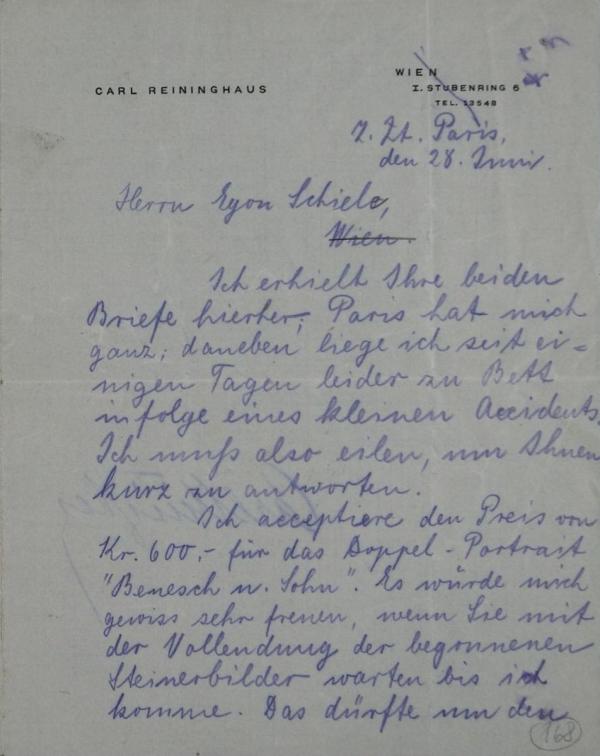 CARL REININGHAUS
WIEN
I. STUBENRING 6
TEL. 13548
z. Zt. Paris,
den 28. Juni.
Herrn Egon Schiele,
Wien.
Ich erhielt Ihre beiden
Briefe hierher; Paris hat mich
ganz; daneben liege ich seit ei=
nigen Tagen leider zu Bett
infolge eines kleinen Accidents.
Ich muß also eilen, um Ihnen
kurz zu antworten.
Ich acceptiere den Preis von
Kr. 600,- für das Doppel-Portrait
"Benesch u. Sohn". Es würde mich
gewiss sehr freuen, wenn Sie mit
der Vollendung der begonnenen
Steinerbilder warten bis ich
komme. Das dürfte um den
168